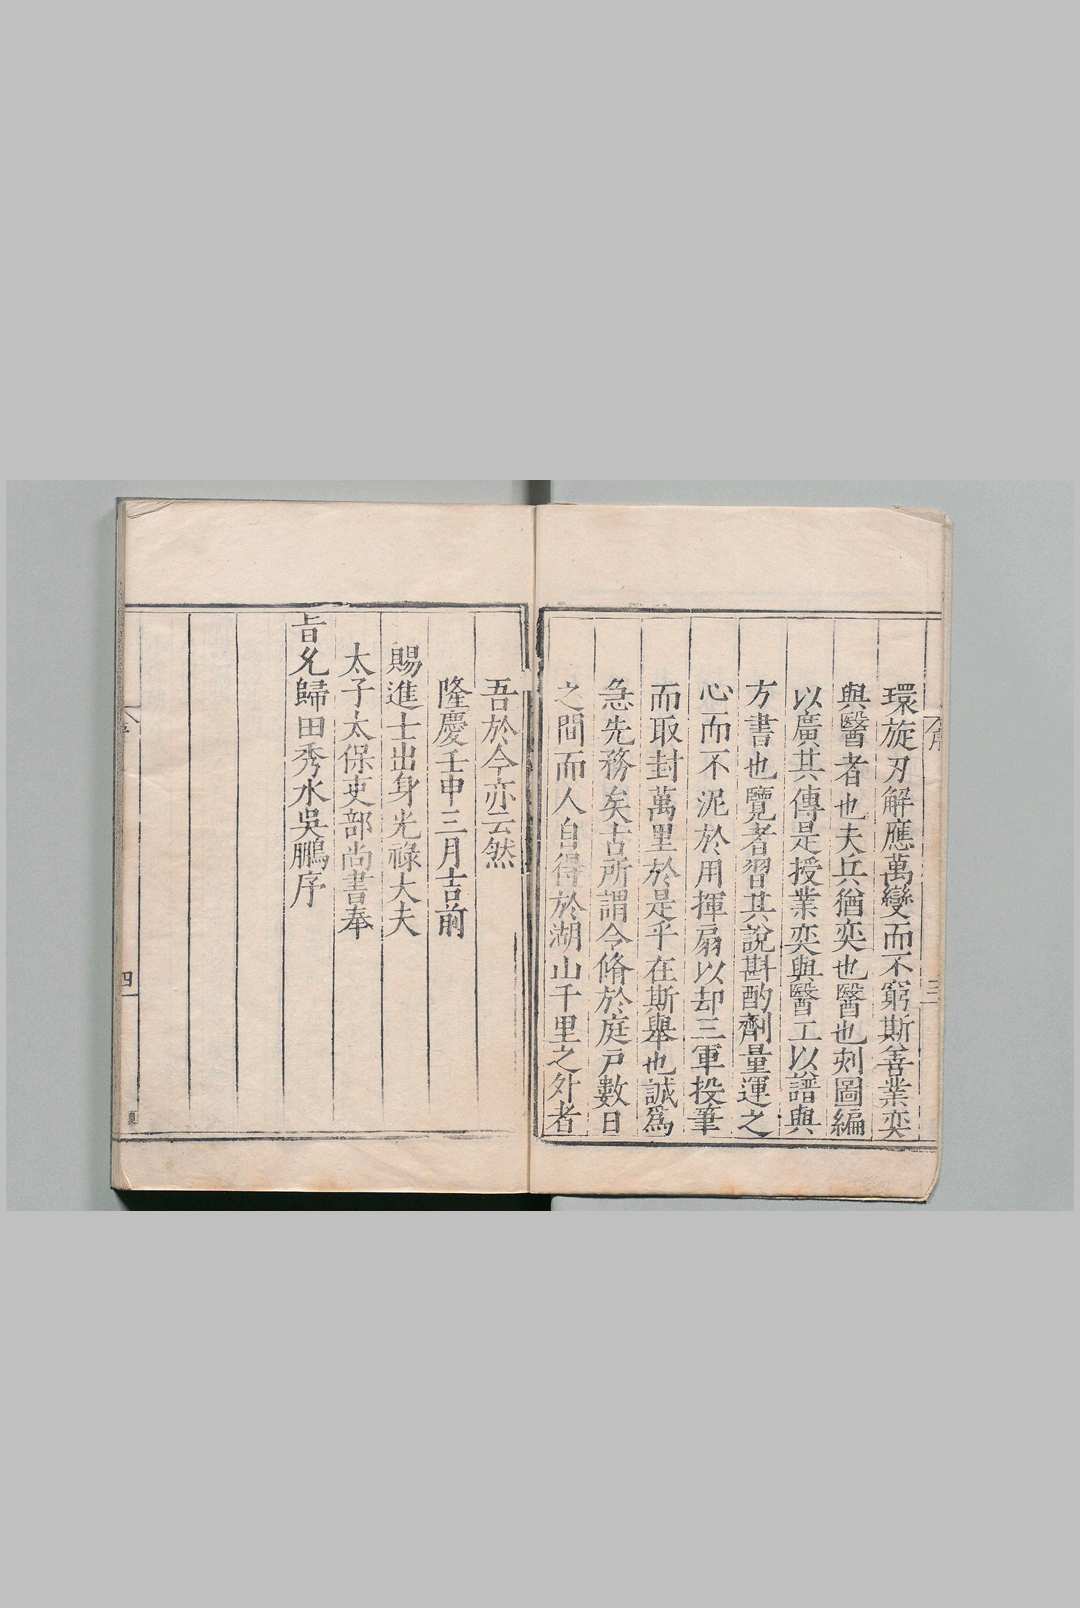 環旋刃解應萬變而不窮斯善業奕
與醫者也夫兵猶奕也醫也刻圖編
以廣其傳是授業奕與醫工以譜與
方書也覽者習其說斟酌劑量運之
心而不泥於用揮扇以却三軍投筆
而取封萬里於是乎在斯舉也誠爲
急先務矣古所謂令脩於庭戸數日
之間而人自得於湖山千里之外者
三
吾於今亦云然
隆慶壬申三月吉前
賜進士出身光祿大夫
太子太保吏部尚書奉
旨允歸田秀水吳鵬序
四